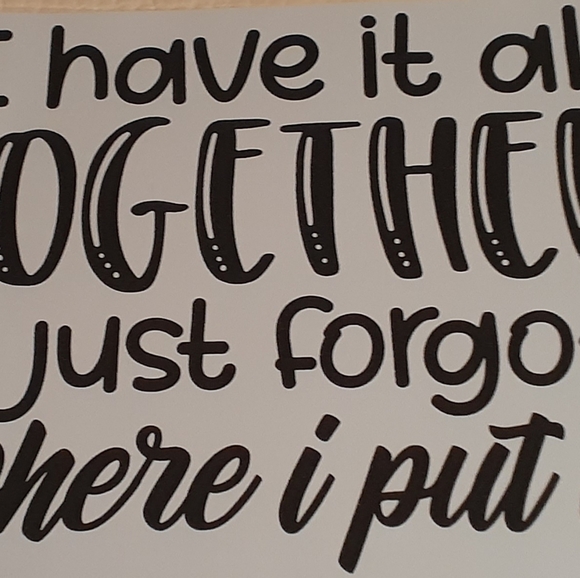 I have it al
OGETHE
just forgo
here i put